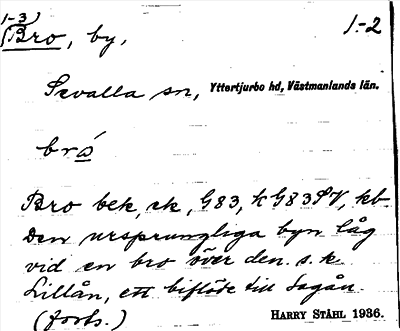 1-3) 1.-2
Bro, by,
Sevalla sn, Yttertjurbo hd, Västmanlands län.
brò
Bro bek, ek, G83, kG83SV, kb-
Den ursprungliga byn låg
vid en bro över den s.k.
Lillån, ett biflöde till Sagån.
(forts.) HARRY STÅHL 1936.